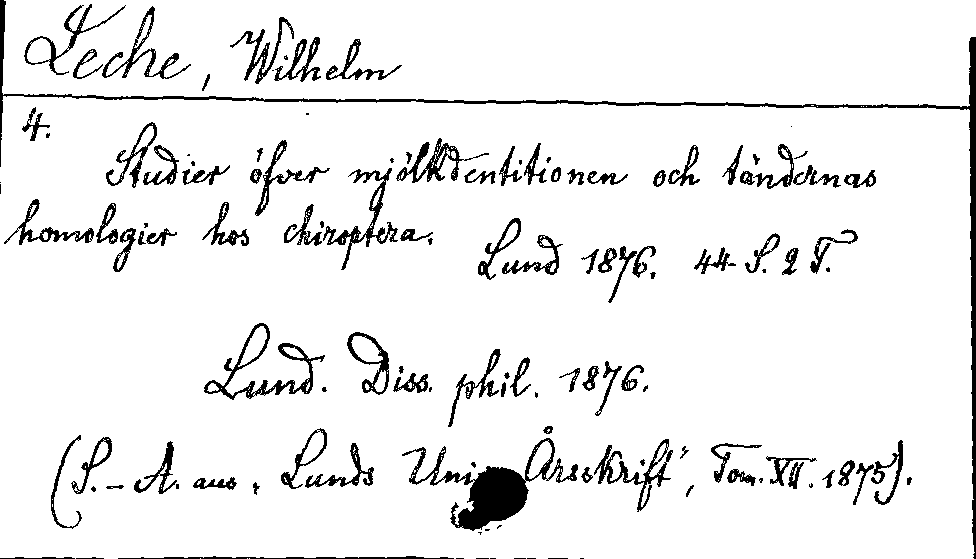 Leche, Wilhelm
4.
Studier öfver mjölkdentitionen och tändernas
homologier hos chiroptera.
Lund 1876. 44 S. 2 T.
Lund. Diss. phil. 1876.
(S.-A. aus „Lunds Univ. Årsskrift", Tom. XII. 1875).